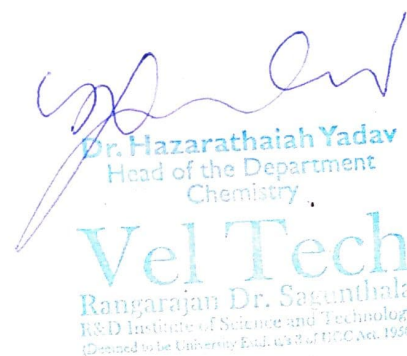 Dr. Hazarathaiah Yadav
Head of the Department
Chemistry
Vel Tech
Rangarajan Dr. Sagunthala
R&D Institute of Science and Technolog
(Deemed to be University Estd. u/s 3 of UGC Act, 1956